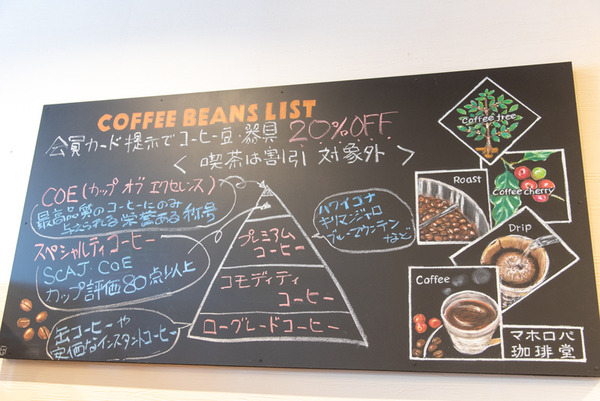 COFFEE BEANS LIST
会員カード提示でコーヒー豆、器具 20%OFF
< 喫茶は割引対象外 >
COE(カップ オブ エクセレンス)
最高品質のコーヒーにのみ
与えられる栄誉ある称号
スペシャルティコーヒー
SCAJ・COE
カップ評価80点以上
缶コーヒーや
安価なインスタントコーヒー
プレミアム
コーヒー
コモディティ
コーヒー
ローグレードコーヒー
ハワイコナ
キリマンジャロ
ブルーマウンテン
など
Coffee tree
Roast
Coffee cherry
Drip
Coffee
マホロバ
珈琲堂